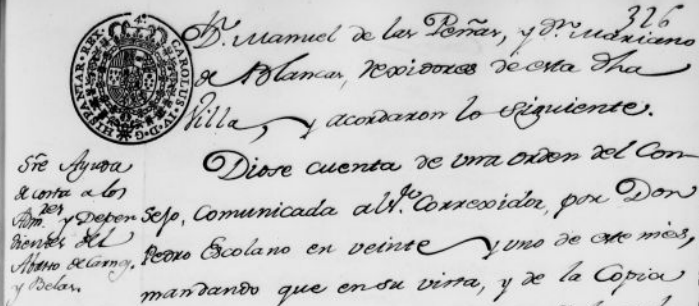 326
4.º
CAROLUS·IV·D·G·HISPANIAR·REX·
Dn. Manuel de las Peñas, y Dn. Mariano
de Ablancas, Rexidores de esta dha
Villa, y acordaron lo siguiente.
Sre Ayuda
de costa a los
Adm.res y Depen
dientes del
Abasto de Carnes.
y Velas.
Diose cuenta de una orden del Con-
sejo, Comunicada al Sr. Correxidor, por Don
Pedro Escolano en veinte y uno de este mes,
mandando que en su vista, y de la Copia